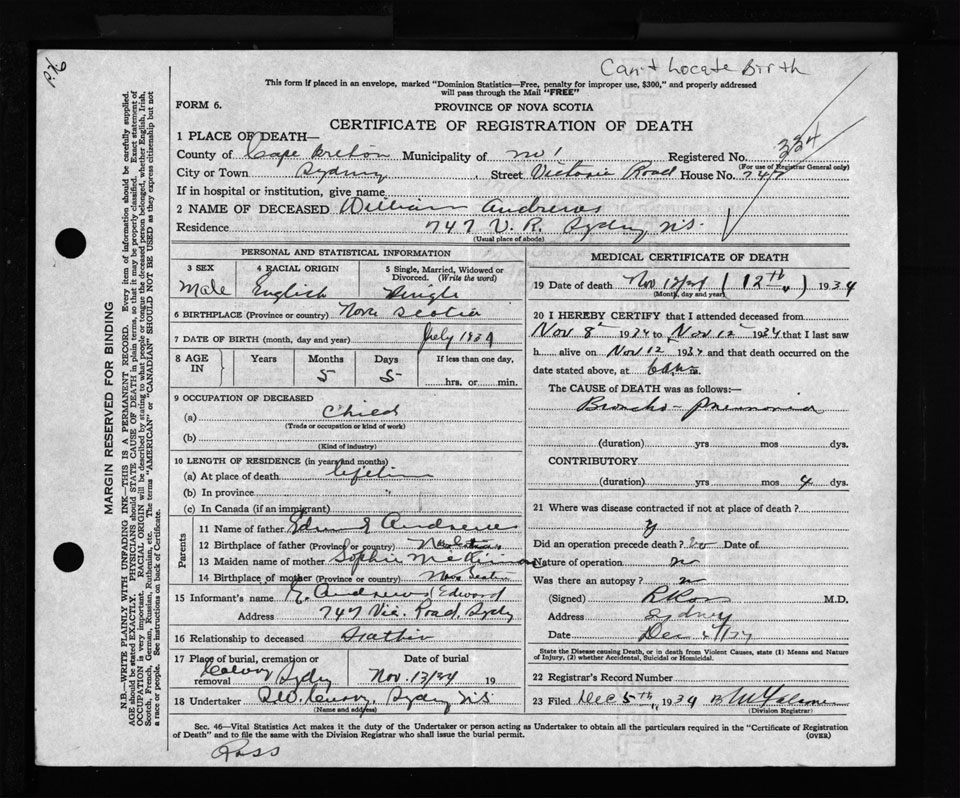 P.46
Can't Locate Birth
This form if placed in an envelope, marked "Dominion Statistics—Free, penalty for improper use, $300," and properly addressed
will pass through the Mail "FREE"
FORM 6.
PROVINCE OF NOVA SCOTIA
CERTIFICATE OF REGISTRATION OF DEATH
1 PLACE OF DEATH—
334
County of Cape Breton Municipality of No 1 Registered No.
(For use of Registrar General only)
City or Town Sydney, Street Victoria Road House No. 747
If in hospital or institution, give name
2 NAME OF DECEASED William Andrews
Residence 747 V. R. Sydney N.S.
(Usual place of abode)
PERSONAL AND STATISTICAL INFORMATION
3 SEX Male
4 RACIAL ORIGIN English
5 Single, Married, Widowed or Divorced. (Write the word) Single
6 BIRTHPLACE (Province or country) Nova Scotia
7 DATE OF BIRTH (month, day and year) July 1934
8 AGE IN Years Months Days If less than one day,
5 5 hrs. or min.
9 OCCUPATION OF DECEASED
(a) Child
(Trade or occupation or kind of work)
(b)
(Kind of industry)
10 LENGTH OF RESIDENCE (in years and months)
(a) At place of death lifetime
(b) In province "
(c) In Canada (if an immigrant)
Parents
11 Name of father Andrews
12 Birthplace of father (Province or country)
13 Maiden name of mother Sophie
14 Birthplace of mother (Province or country) Nova Scotia
15 Informant's name E. Andrews (Edward
Address 747 Vic. Road, Sydy
16 Relationship to deceased Father
17 Place of burial, cremation or removal Sydy
Date of burial Nov. 13/34 19
18 Undertaker Sydney N.S.
(Name and address)
MEDICAL CERTIFICATE OF DEATH
19 Date of death Nov 12/34 (12th) 1934
(Month, day and year)
20 I HEREBY CERTIFY that I attended deceased from
Nov 8 1934 to Nov 12 1934 that I last saw
h alive on Nov 12 1934 and that death occurred on the
date stated above, at m.
The CAUSE of DEATH was as follows:—
Broncho-pneumonia
(duration) yrs mos dys.
CONTRIBUTORY
(duration) yrs mos 4 dys.
21 Where was disease contracted if not at place of death?
Did an operation precede death? no Date of
Nature of operation
Was there an autopsy? no
(Signed) Ross M.D.
Address Sydney
Date Dec 4/34
State the Disease causing Death, or in death from Violent Causes, state (1) Means and Nature
of Injury, (2) whether Accidental, Suicidal or Homicidal.
22 Registrar's Record Number
23 Filed Dec 5th, 1934
(Division Registrar)
Sec. 46—Vital Statistics Act makes it the duty of the Undertaker or person acting as Undertaker to obtain all the particulars required in the "Certificate of Registration
of Death" and to file the same with the Division Registrar who shall issue the burial permit.
(OVER)
Ross
MARGIN RESERVED FOR BINDING
N.B.—WRITE PLAINLY WITH UNFADING INK—THIS IS A PERMANENT RECORD. Every item of information should be carefully supplied.
AGE should be stated EXACTLY. PHYSICIANS should STATE CAUSE OF DEATH in plain terms, so that it may be properly classified. Exact statement of
OCCUPATION is very important. RACIAL ORIGIN will be described by stating to what people or tongue the deceased person belonged, whether English, Irish,
Scotch, French, German, Russian, Ruthenian, etc. The terms "AMERICAN" or "CANADIAN" SHOULD NOT BE USED as they express citizenship but not
a race or people. See instructions on back of Certificate.